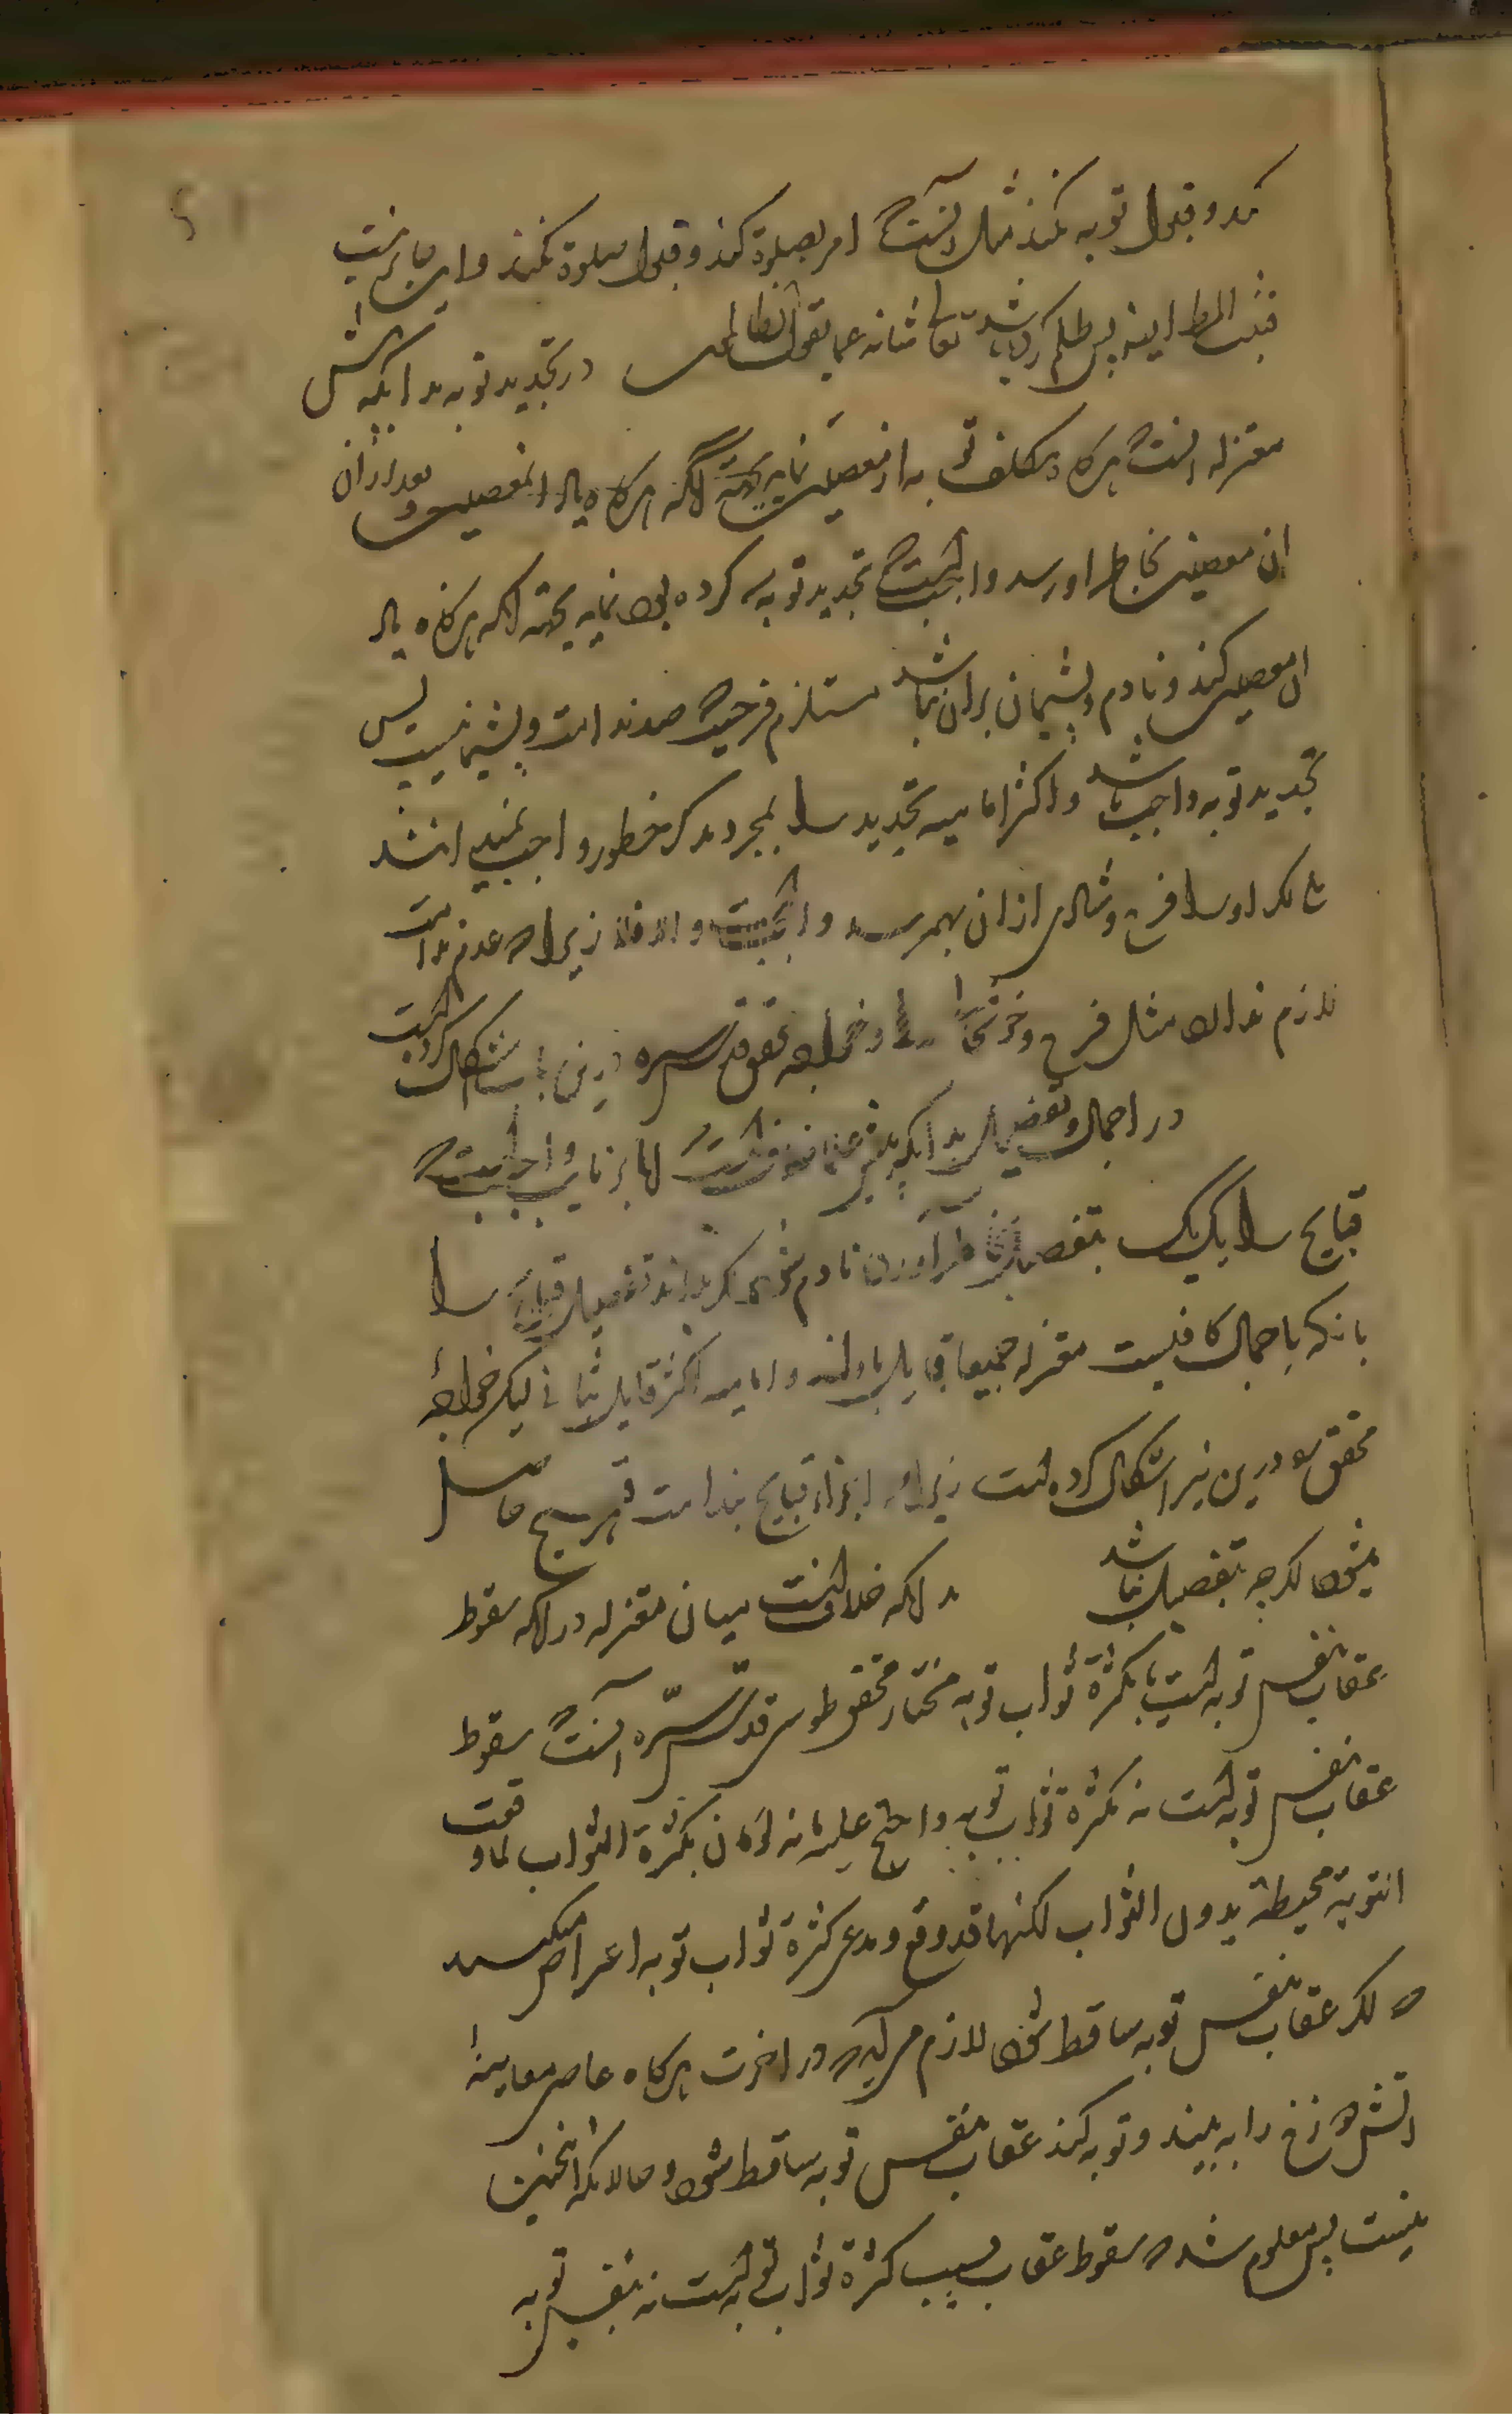 کند و قبول توبه نکند مثل آنست که امر بصلوة کند و قبول صلوة نکند و این جایز نیست
پس ظلم کرده باشد تعالی شانه عما یقول الظالمون در تجدید توبه بدانکه
معتزله آنست که هرکاه مکلف توبه از معصیتی نماید بجهة آنکه هرکاه یاد آن معصیت و بعد از آن
آن معصیت بخاطر او رسد واجبست که تجدید توبه که کرده بود نماید بجهة آنکه هرکاه یاد
آن معصیت کند و نادم و پشیمان بر آن نباشد مستلزم فرحیست که ضد ندامت و پشیمانیست پس
تجدید توبه واجب باشد و اکثر امامیه تجدید را بمجرد خطور واجب نمیدانند
اگر او را فرح و شادی از آن بهم رسد واجبست و الا فلا زیرا که عدم ندامت
لازم ندارد مثل فرح و خوشحالی را و خواجه محقق قدس سره درین باب اشکال کرده است
در اجمال و تفصیل بدانکه
قبایح را یک یک بتفصیل بخاطر آورده نادم شود اگر بداند تفصیل قبایح را
یا آنکه باجمال کافیست معتزله جمیعا قایل باولند و امامیه اکثر قایل بثانی لیکن خواجه
محقق درین نیز اشکال کرده است زیرا که اجزاء قبایح بندامت قبیح حاصل
میشود اگرچه بتفصیل نباشد بدانکه خلافست میان معتزله در آنکه سقوط
عقاب بنفس توبه است یا بکثرة ثواب توبه مختار محقق طوسی قدس سره آنست که سقوط
عقاب بنفس توبه است نه بکثرة ثواب توبه و احتج علیه بانه لو کان بکثرة الثواب لما وقعت
التوبة محبطة بدون الثواب لکنها قد وقع و مدعی کثرة ثواب توبه اعتراض میکند
که اگر عقاب بنفس توبه ساقط شود لازم می آید که در اخرت هرکاه عاصی معاینه
آتش دوزخ را به بیند و توبه کند عقاب بنفس توبه ساقط شود و حالانکه اینچنین
نیست پس معلوم شد که سقوط عقاب بسبب کثرة ثواب توبه است نه بنفس توبه